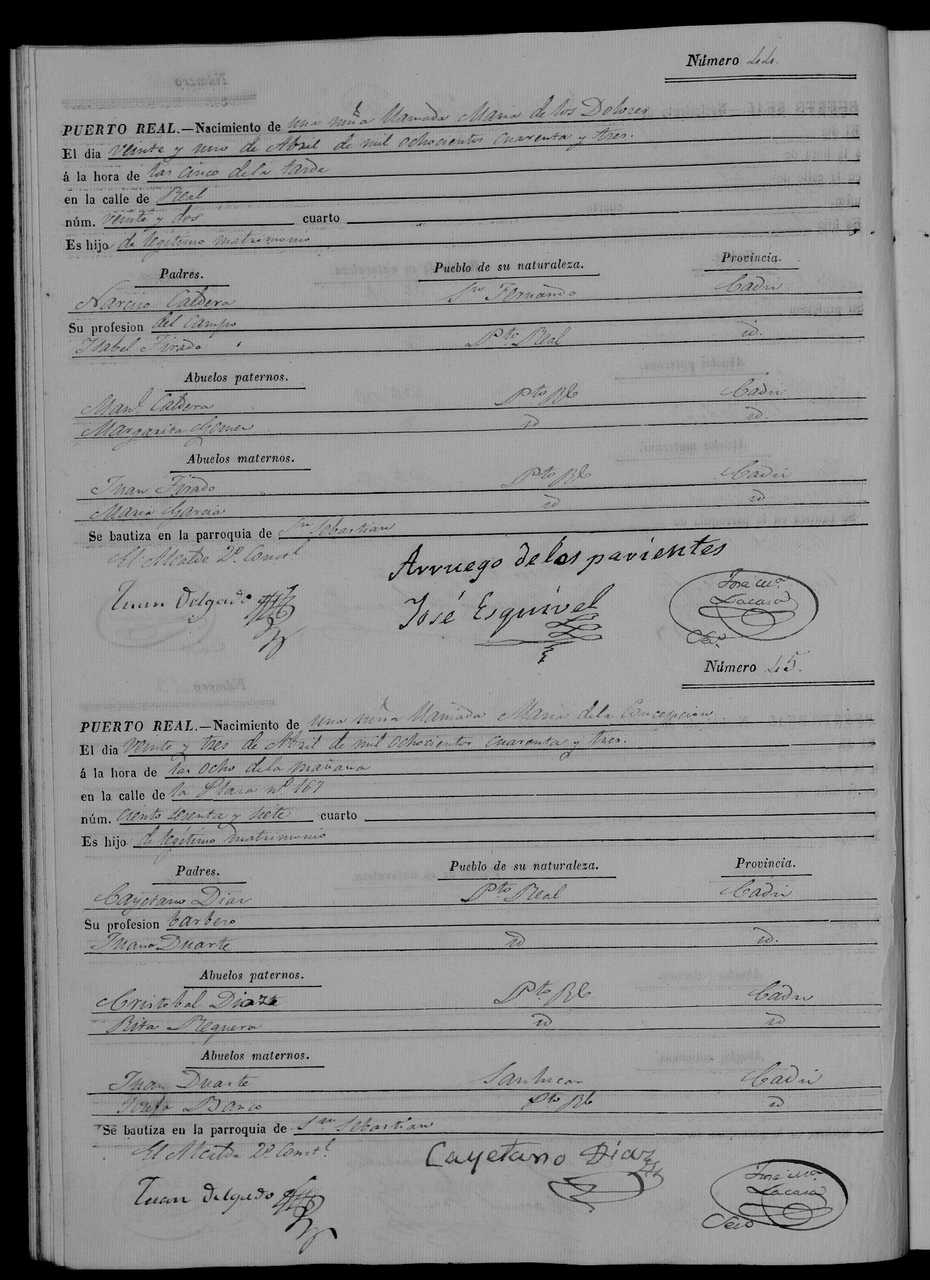 Número 44.
PUERTO REAL.—Nacimiento de una niña llamada Maria de los Dolores
El dia veinte y uno de Abril de mil ochocientos cuarenta y tres.
á la hora de las cinco de la tarde
en la calle de Real
núm. veinte y dos cuarto
Es hijo de legitimo matrimonio
Padres. Pueblo de su naturaleza. Provincia.
Narciso Caldera Sn Fernando Cadiz
Su profesion del Campo
Isabel Tirado Pto Real id.
Abuelos paternos.
Manl Caldera Pto Rl Cadiz
Margarita Gomez id id.
Abuelos maternos.
Juan Tirado Pto Rl Cadiz
Maria Garcia id id
Se bautiza en la parroquia de Sn Sebastian
El Alcalde 2º Constl
Arruego de los parientes
Juan Delgado José Esquivel José Mª Lacasa
Número 45.
PUERTO REAL.—Nacimiento de una niña llamada Maria de la Concepcion
El dia veinte y tres de Abril de mil ochocientos cuarenta y tres.
á la hora de las ocho de la mañana
en la calle de la Plaza nº 167
núm. ciento sesenta y siete cuarto
Es hijo de legitimo matrimonio
Padres. Pueblo de su naturaleza. Provincia.
Cayetano Diaz Pto Real Cadiz
Su profesion barbero
Juana Duarte id id.
Abuelos paternos.
Cristobal Diaz Pto Rl Cadiz
Rita Reguera id id
Abuelos maternos.
Juan Duarte Sanlucar Cadiz
Josefa Pto Rl id
Se bautiza en la parroquia de San Sebastian
El Alcalde 2º Constl
Cayetano Diaz
Juan Delgado José Mª Lacasa